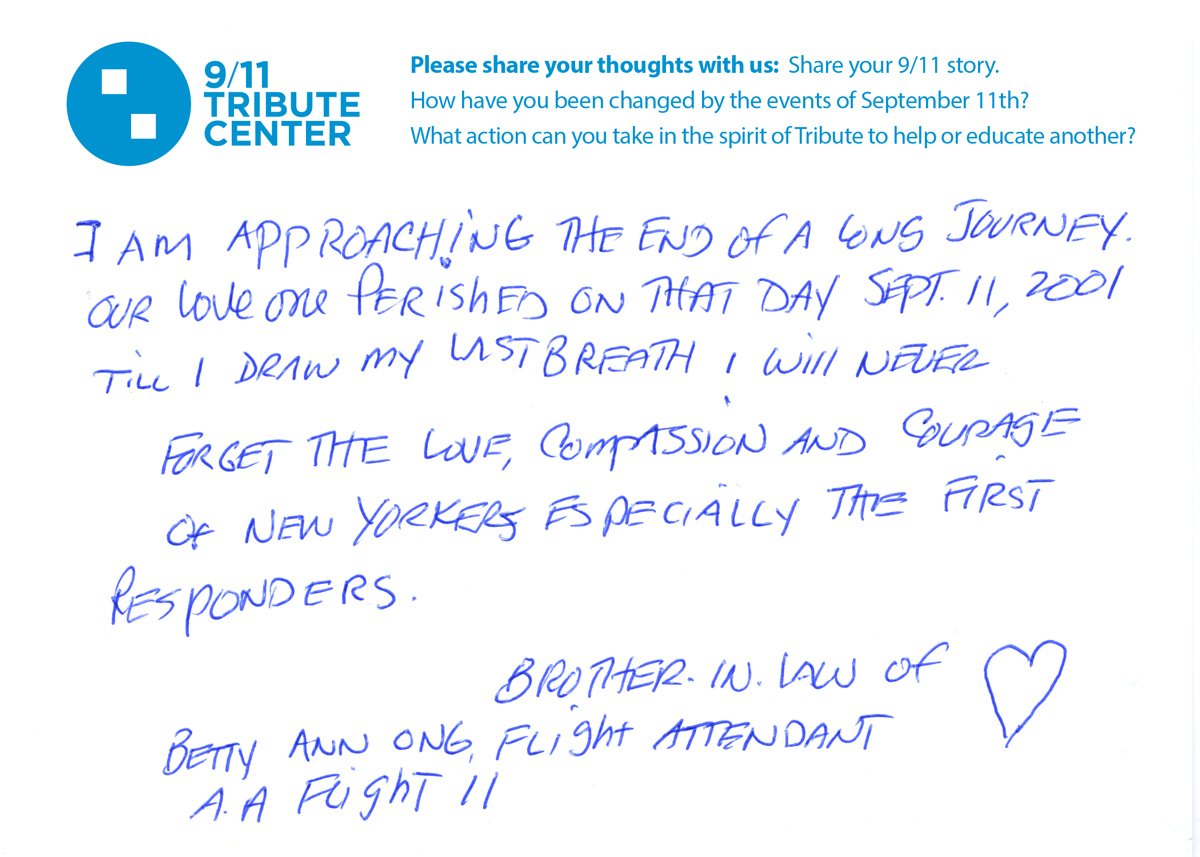 9/11
TRIBUTE
CENTER
Please share your thoughts with us: Share your 9/11 story.
How have you been changed by the events of September 11th?
What action can you take in the spirit of Tribute to help or educate another?
I AM APPROACHING THE END OF A LONG JOURNEY.
OUR LOVE ONE PERISHED ON THAT DAY SEPT. 11, 2001
TILL I DRAW MY LAST BREATH I WILL NEVER
FORGET THE LOVE, COMPASSION AND COURAGE
OF NEW YORKERS ESPECIALLY THE FIRST
RESPONDERS.
BROTHER. IN. LAW OF
BETTY ANN ONG, FLIGHT ATTENDANT
A.A FLIGHT 11